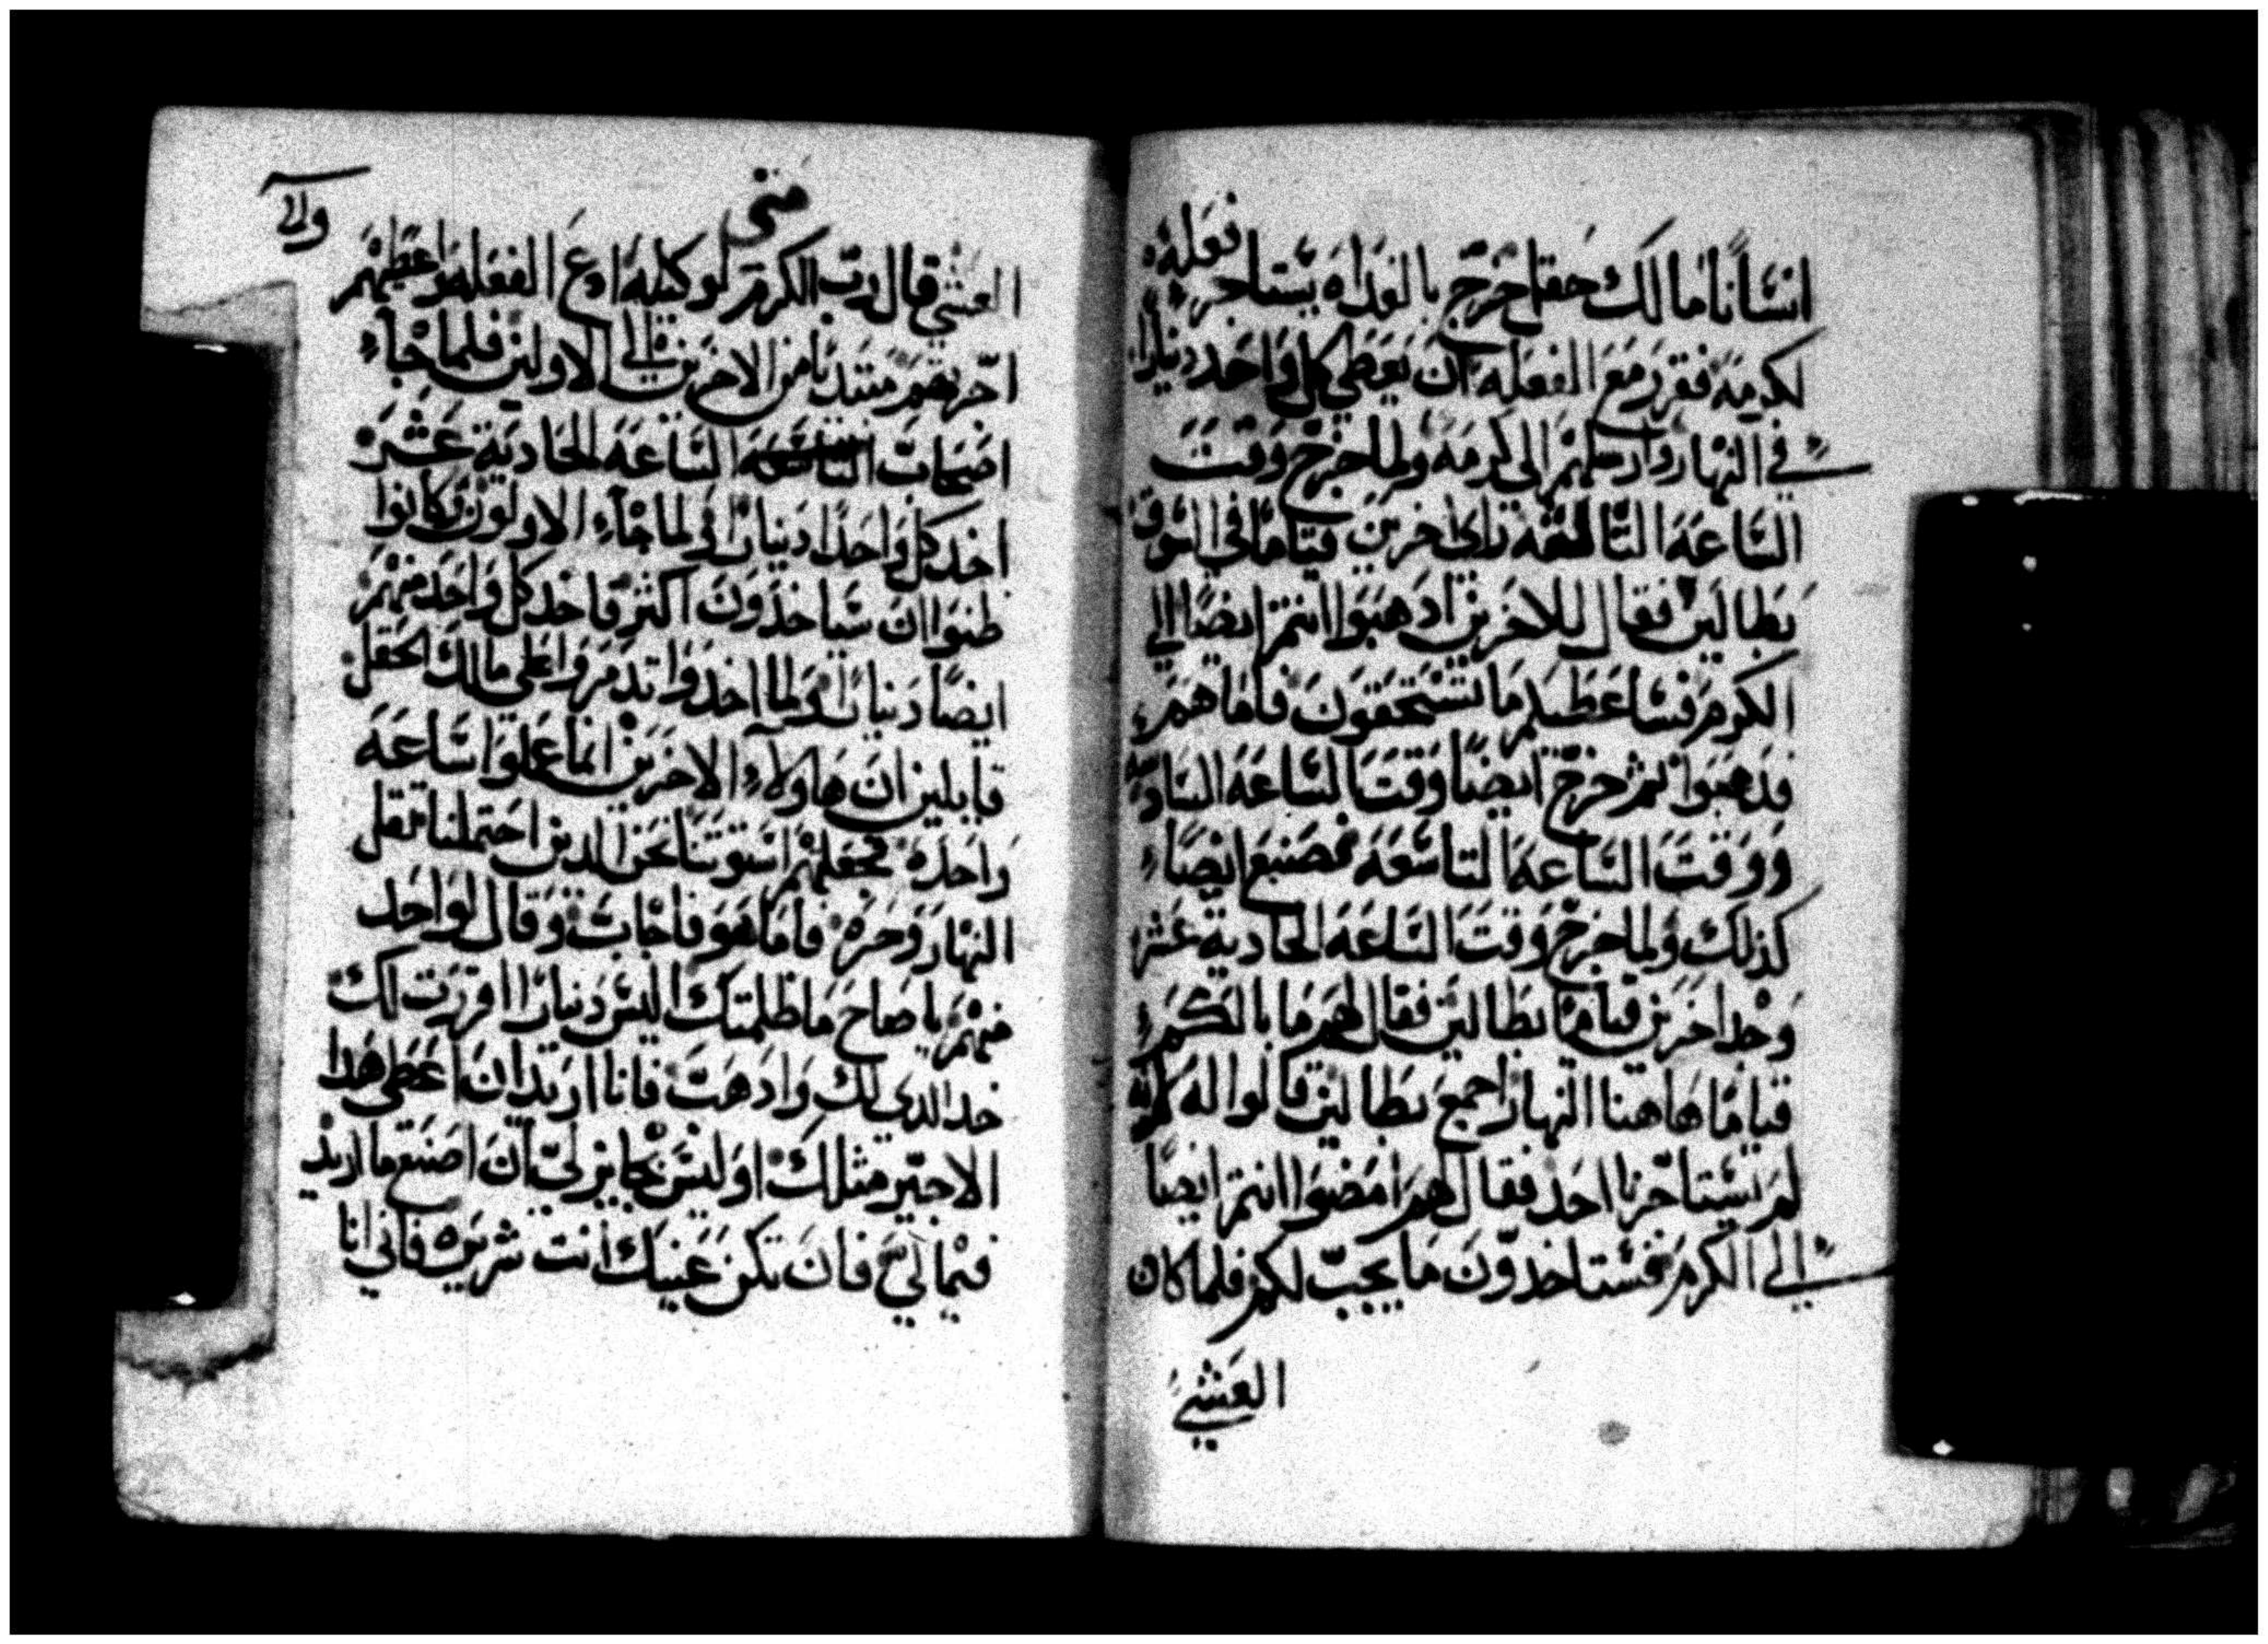 انسانا مالك حقل خرج بالغداه يستاجر فعله
لكرمه فقرر مع الفعله ان يعطي كل واحد دينارا
في النهار وارسلهم الى كرمه ولما خرج وقت
الساعه التالثه راى اخرين قياما في السوق
بطالين فقال للاخرين ادهبوا انتم ايضا الي
الكرم فساعطيكم ما تستحقون فاما هم
فدهبوا ثم خرج ايضا وقت الساعه السادسه
ووقت الساعه التاسعه فصنع ايضا
كذلك ولما خرج وقت الساعه الحادية عشر
وجد اخرين قياما بطالين فقال لهم ما بالكم
قياما هاهنا النهار اجمع بطالين قالوا له لانه
لم يستاجرنا احد فقال لهم امضوا انتم ايضا
الي الكرم فستاخدون ما يجب لكم فلما كان
العشي
متى
العشي قال رب الكرم لوكيله ادع الفعله واعطيهم
اجرتهم مبتديا من الاخرين الي الاولين فلما جاء
اصحاب الساعه الحادية عشر
اخد كل واحدا دينارا ولما جاء الاولون كانوا
ظنوا ان سياخدون اكثر فاخد كل واحد منهم
ايضا دينارا ولما اخدوا تدمروا على مالك الحقل
قايلين ان هاولاء الاخرين انما عملوا ساعه
واحده فجعلتهم اسوتنا نحن الدين احتملنا ثقل
النهار وحره فاما هو فاجاب وقال لواحد
منهم يا صاح ما ظلمتك اليس دينارا اقررت لك
خد الدي لك وادهب فانا اريد ان اعطي هدا
الاخير مثلك اوليس بجايز لي ان اصنع ما اريد
فيما لي فان تكن عينك انت شريره فاني انا